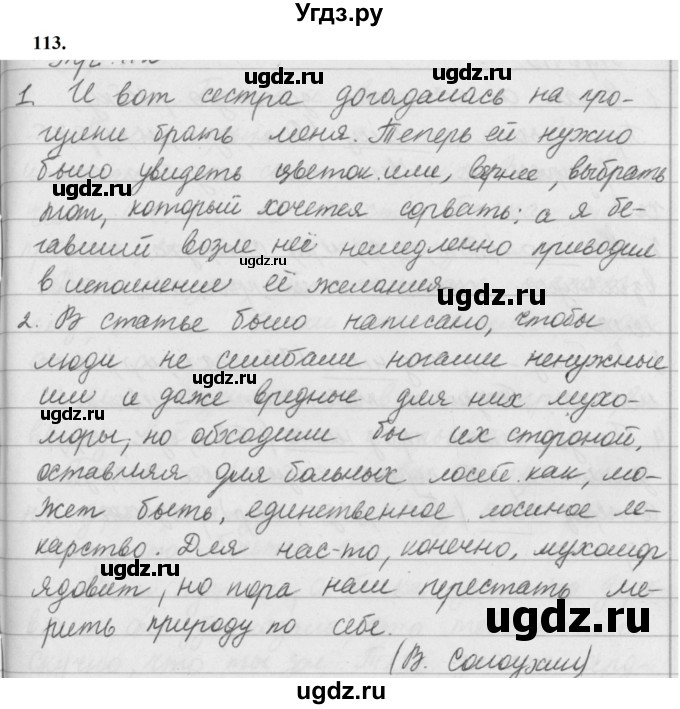 Угдз.ру
113.
ugdz.ru ugdz.ru ugdz.ru
1. И вот сестра догадалась на про-
гулки брать меня. Теперь ей нужно
было увидеть цветок или, вернее, выбрать
ugdz.ru ugdz.ru
тот, который хочется сорвать; а я бе-
гавший возле неё немедленно приводил
ugdz.ru
в исполнение её желания
ugdz.ru
2. В статье было написано, чтобы
люди не сшибали ногами ненужные
ugdz.ru
им и даже вредные для них мухо-
моры, но обходили бы их стороной,
ugdz.ru ugdz.ru
оставляя для больных лосей как, мо-
жет быть, единственное лосиное ле-
карство. Для нас-то, конечно, мухомор
ugdz.ru
ядовит, но пора нам перестать ме-
ugdz.ru
рить природу по себе.
ugdz.ru
(В. Солоухин)
ugdz.ru